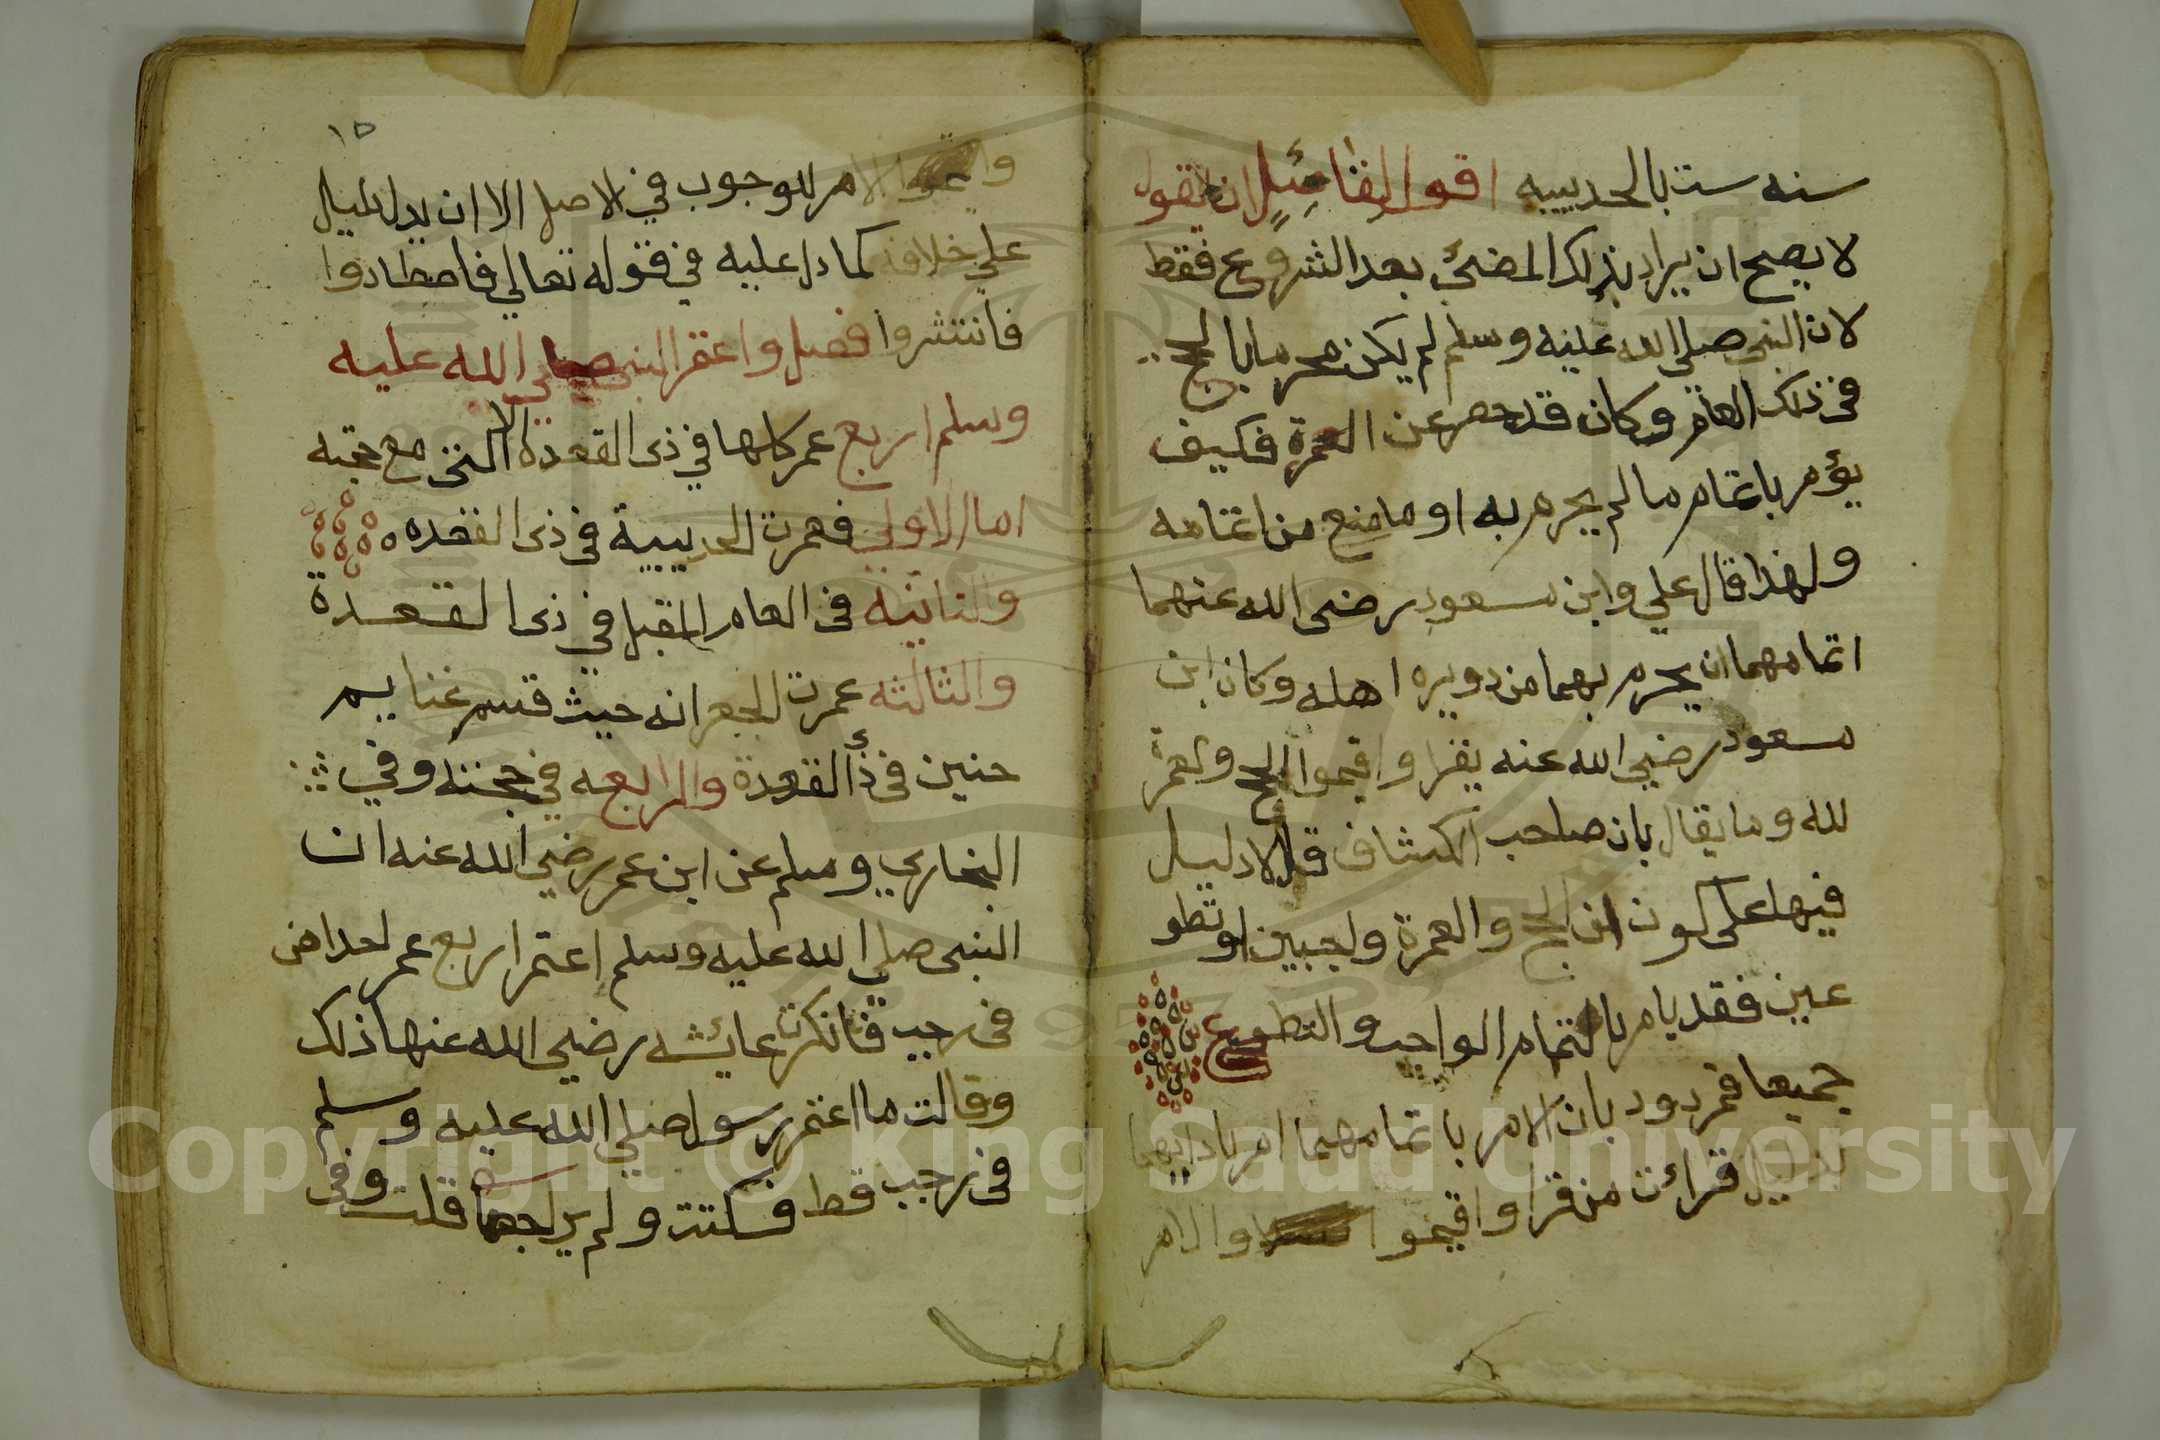 سنه ست بالحديبيه اقول لقائل ان يقول
لا يصح ان يراد بذلك المضئ بعد الشروع فقط
لان النبى صلى الله عليه وسلم لم يكن محرما بالحج
فى ذلك العام وكان قد حصر عن العمرة فكيف
يؤمر باتمام ما لم يحرم به او ما منع من اتمامه
ولهذا قال علي وابن مسعود رضى الله عنهما
اتمامهما ان يحرم بهما من دويره اهله وكان ابن
مسعود رضي الله عنه يقرا واقيموا الحج والعمرة
لله وما يقال بان صاحب الكشاف قال لا دليل
فيها على كون الحج والعمرة واجبين او تطو
عين فقد يامر باتمام الواجب والتطوع
جميعا فمردود بان الامر باتمامهما امر بادايهما
بدليل قراءت من قرا واقيموا والامر
١٥
واقيموا الامر للوجوب في الاصل الا ان يدل دليل
على خلافه كما دل عليه في قوله تعالي فاصطادوا
فانتشروا فصل واعتمر النبى صلي الله عليه
وسلم اربع عمر كلها في ذى القعدة الا التى مع حجته
اما الاولي فعمرت الحديبية فى ذى القعده
والثانيه فى العام المقبل في ذى القعدة
والثالثه عمرت الجعرانه حيث قسم غنايم
حنين فى ذى القعدة والرابعه في حجته وفي
البخاري ومسلم عن ابن عمر رضي الله عنه ان
النبى صلى الله عليه وسلم اعتمر اربع عمر احداهن
فى رجب فانكرت عايشه رضى الله عنها ذلك
وقالت ما اعتمر رسول صلي الله عليه وسلم
فى رجب قط فسكتت ولم يراجعها قلت وفى
Copyright © King Saud University